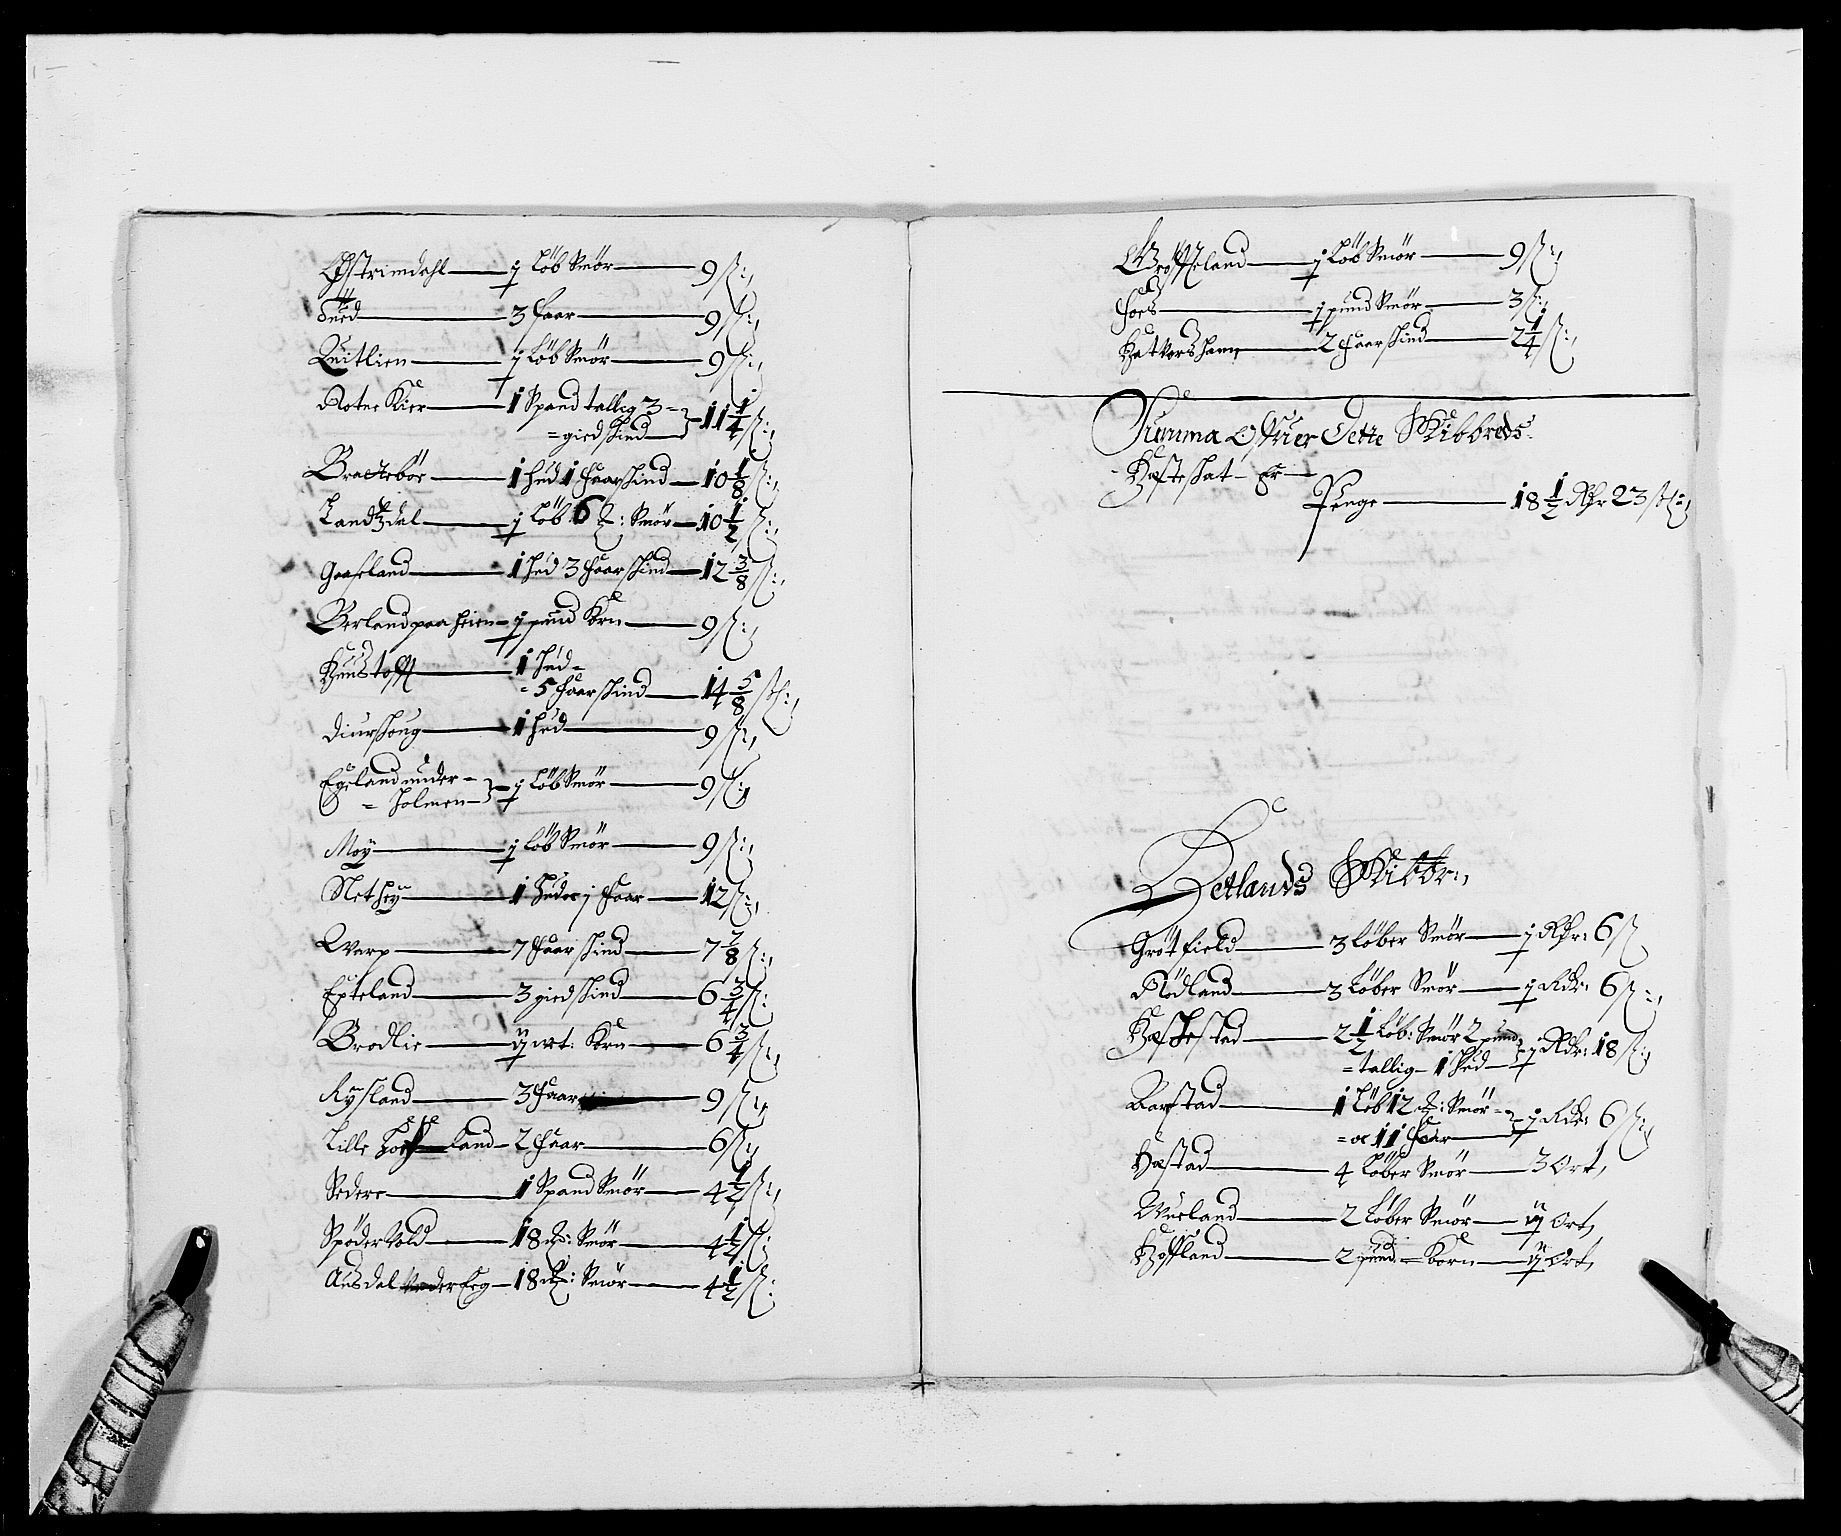 Østrimdahl — j Løb Smør — 9 ß:
Tued — 3 faar — 9 ß:
Quitlien — j Løb Smør — 9 ß:
Rotne Kier — 1 Spand tallig 3 =
= giedskind — 11 1/4 ß:
Bractebør — 1 hud 1 faarskind — 10 1/8 ß:
Landzdal — j Løb 6 : Smør — 10 1/2 ß:
Gaaseland — 1 hud 3 faarskind — 12 3/8 ß:
Berland paa heien — j pund Korn — 9 ß:
1 hud =
= 5 faarskind — 14 5/8 ß:
Diurskoug — 1 hud — 9 ß:
Egeland under =
= holmen — j Løb Smør — 9 ß:
Moÿ — j Løb Smør — 9 ß:
Netheÿ — 1 huder j faar — 12 ß:
Warp — 7 faarskind — 7 7/8 ß:
Epteland — 3 giedskind — 6 3/4 ß:
Brodlie — ij wt: Korn — 6 3/4 ß:
Rÿsland — 3 faar — 9 ß:
Lille land — 2 faar — 6 ß:
Sedere — 1 Spand Smør — 4 1/2 ß:
Spødervold — 18 : Smør — 4 1/2 ß:
Ausdal under Eeg — 18 : Smør — 4 1/2 ß:
Grosseland — j Løb Smør — 9 ß:
Foes — j pund Smør — 3 ß:
2 faarskind — 2 1/4 ß:
Summa Offuer Dette Skibbreds
Hosteskat Er —
Penge — 18 1/2 Rdr 23 ß:
Hetlands Skibbr:
Grøtfield — 3 Løber Smør — j Rdr: 6 ß
Rødland — 3 Løber Smør — j Rdr: 6 ß:
Heskestad — 2 1/2 Løb: Smør 2 pund
= tallig 1 hud — j Rdr: 18 ß:
Aarstad — 1 Løb 12 : Smør =
= oc 11 faar — j Rdr: 6 ß:
Hestad — 4 Løber Smør — 3 Ort,
Mueland — 2 Løber Smør — ij Ort,
Hoffland — 2 pund = Korn — ij Ort,